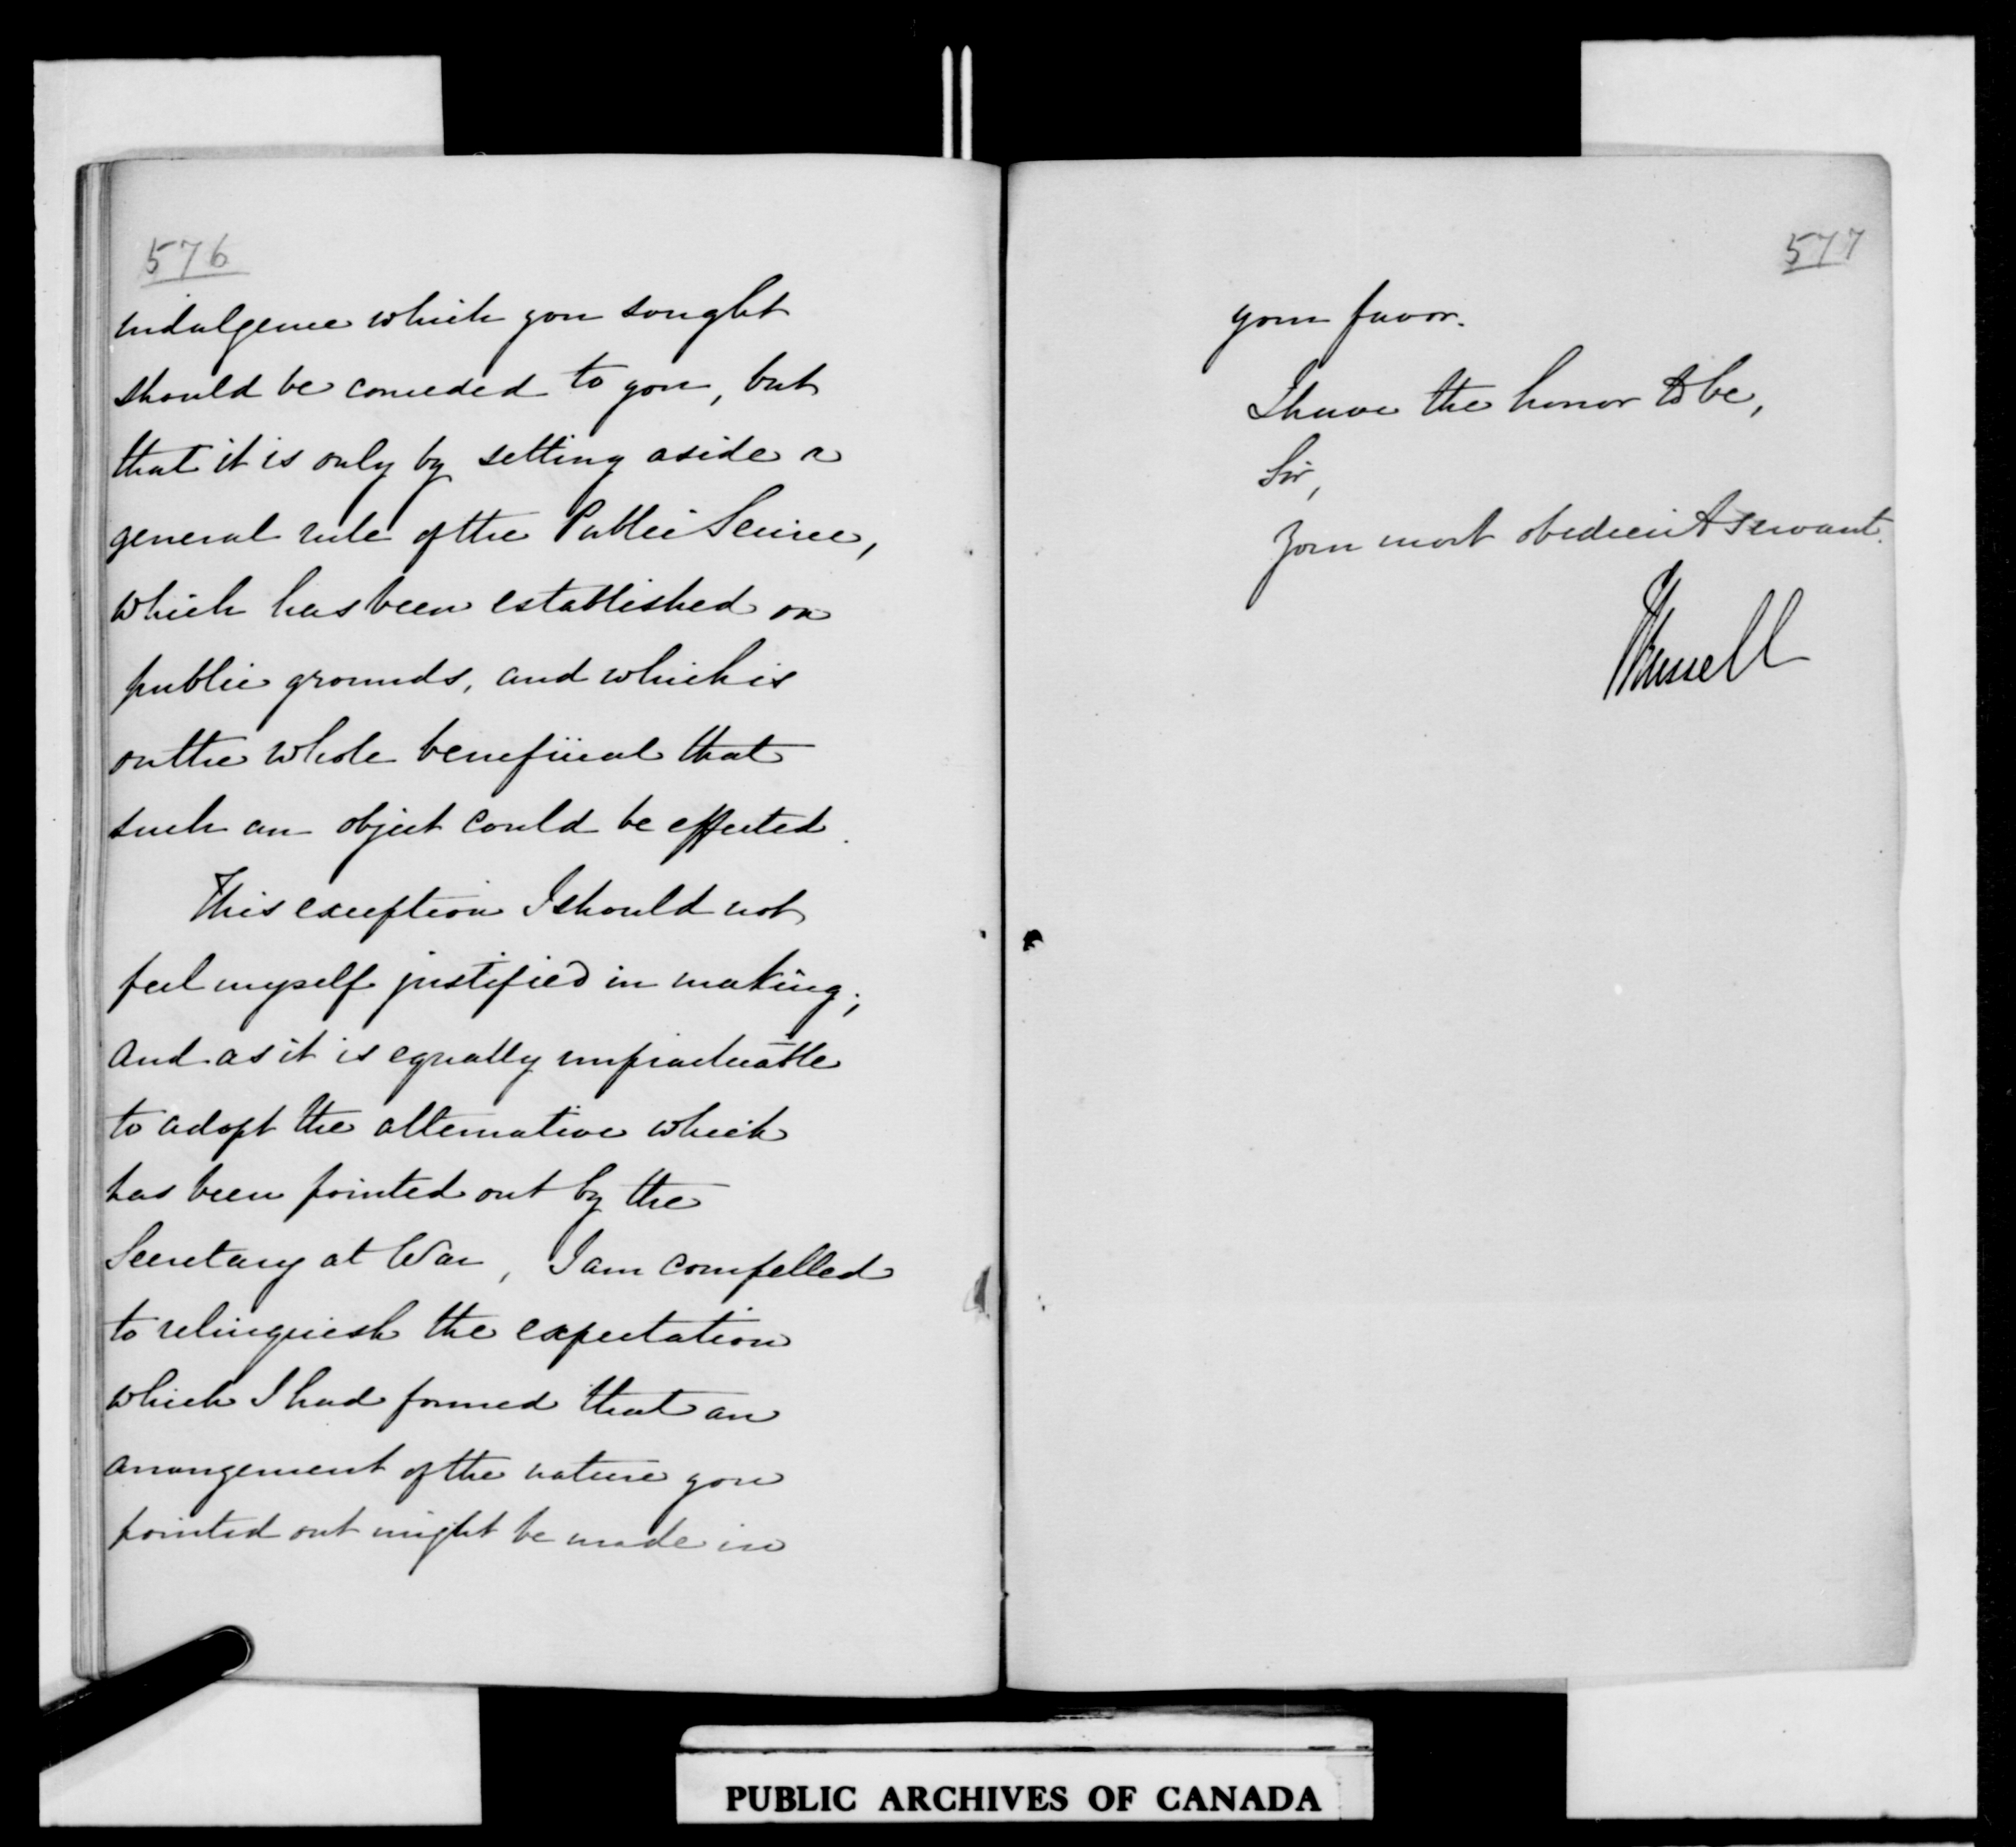 576
indulgence which you sought
should be conceded to you, but
that it is only by setting aside a
general rule of the Public Service,
which has been established on
public grounds, and which is
on the whole beneficial that
such an object could be effected.
This exception I should not
feel myself justified in making;
and as it is equally impracticable
to adopt the alternative which
has been pointed out by the
Secretary at War, I am compelled
to relinquish the expectation
which I had formed that an
arrangement of the nature you
pointed out might be made in
577
your favor.
I have the honor to be,
Sir,
Your most obedient servant.
J Russell
PUBLIC ARCHIVES OF CANADA